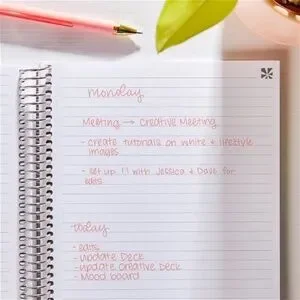 monday
Meeting → Creative Meeting
- create tutorials on white & lifestyle
images
- set up 1:1 with Jessica & Dave for
edits
today
- Edits
- Update Deck
- Update Creative Deck
- Mood board